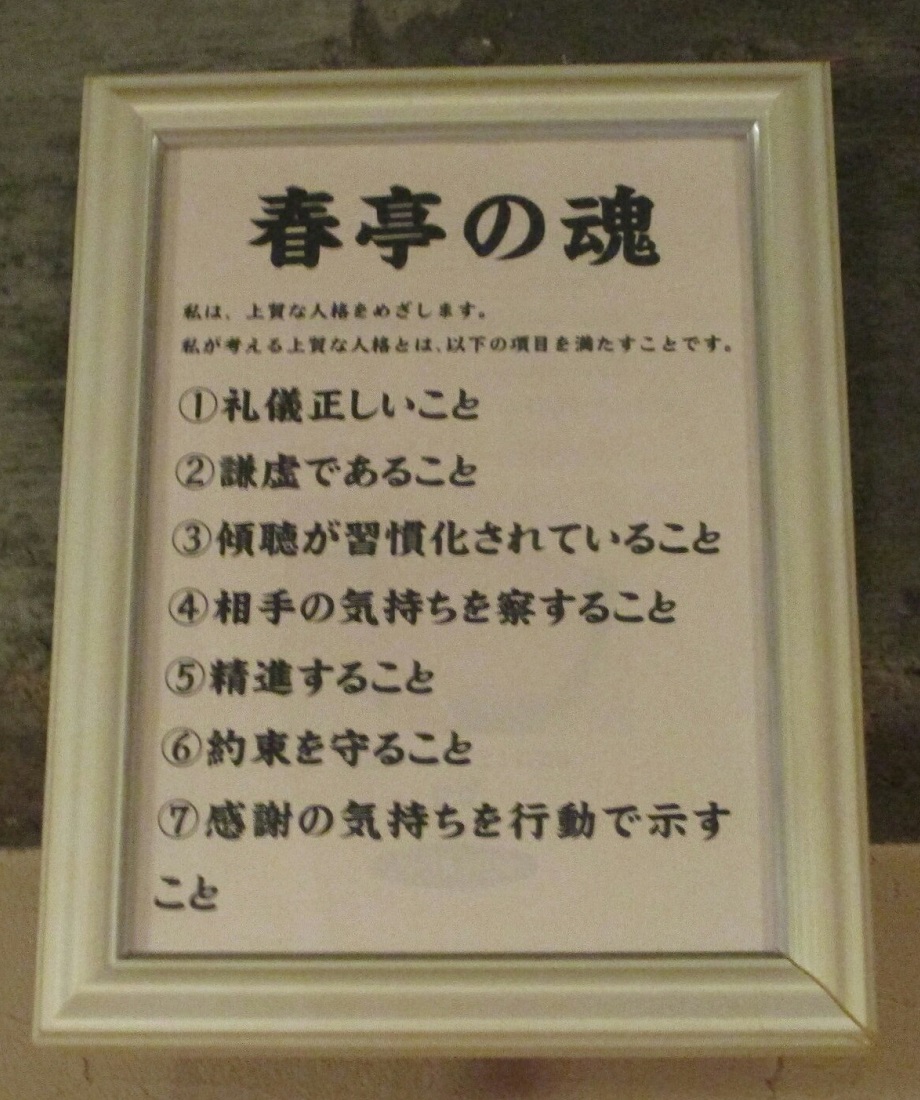 春亭の魂
私は、上質な人格をめざします。
私が考える上質な人格とは、以下の項目を満たすことです。
①礼儀正しいこと
②謙虚であること
③傾聴が習慣化されていること
④相手の気持ちを察すること
⑤精進すること
⑥約束を守ること
⑦感謝の気持ちを行動で示す
こと